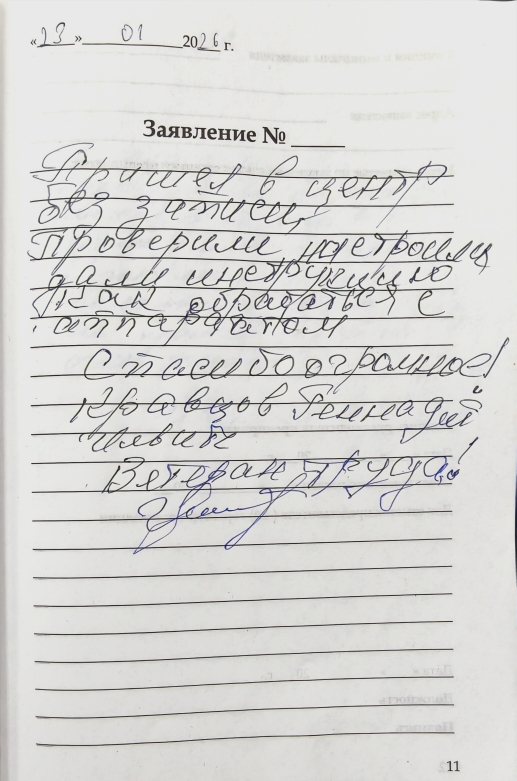 «23» 01 2026 г.
Заявление №
Пришел в центр
без записи,
проверили настроили
дали инструкцию
как обращаться с
аппаратом
Спасибо огромное!
Кравцов Геннадий
Ильич
Ветеран труда!
11